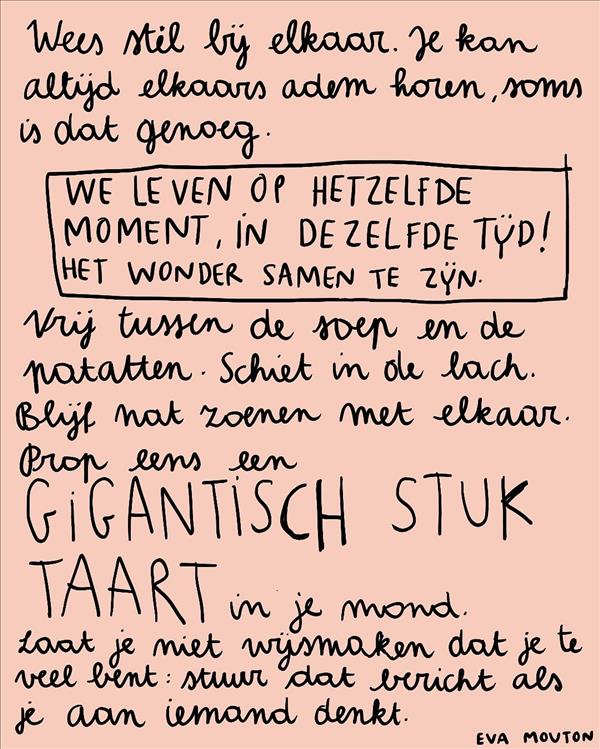 Wees stil bij elkaar. Je kan
altijd elkaars adem horen, soms
is dat genoeg.
WE LEVEN OP HETZELFDE
MOMENT, IN DEZELFDE TŸD!
HET WONDER SAMEN TE ZŸN.
Vrij tussen de soep en de
patatten. Schiet in de lach.
Blijf nat zoenen met elkaar.
Prop eens een
GIGANTISCH STUK
TAART in je mond.
Laat je niet wijsmaken dat je te
veel bent: stuur dat bericht als
je aan iemand denkt.
EVA MOUTON